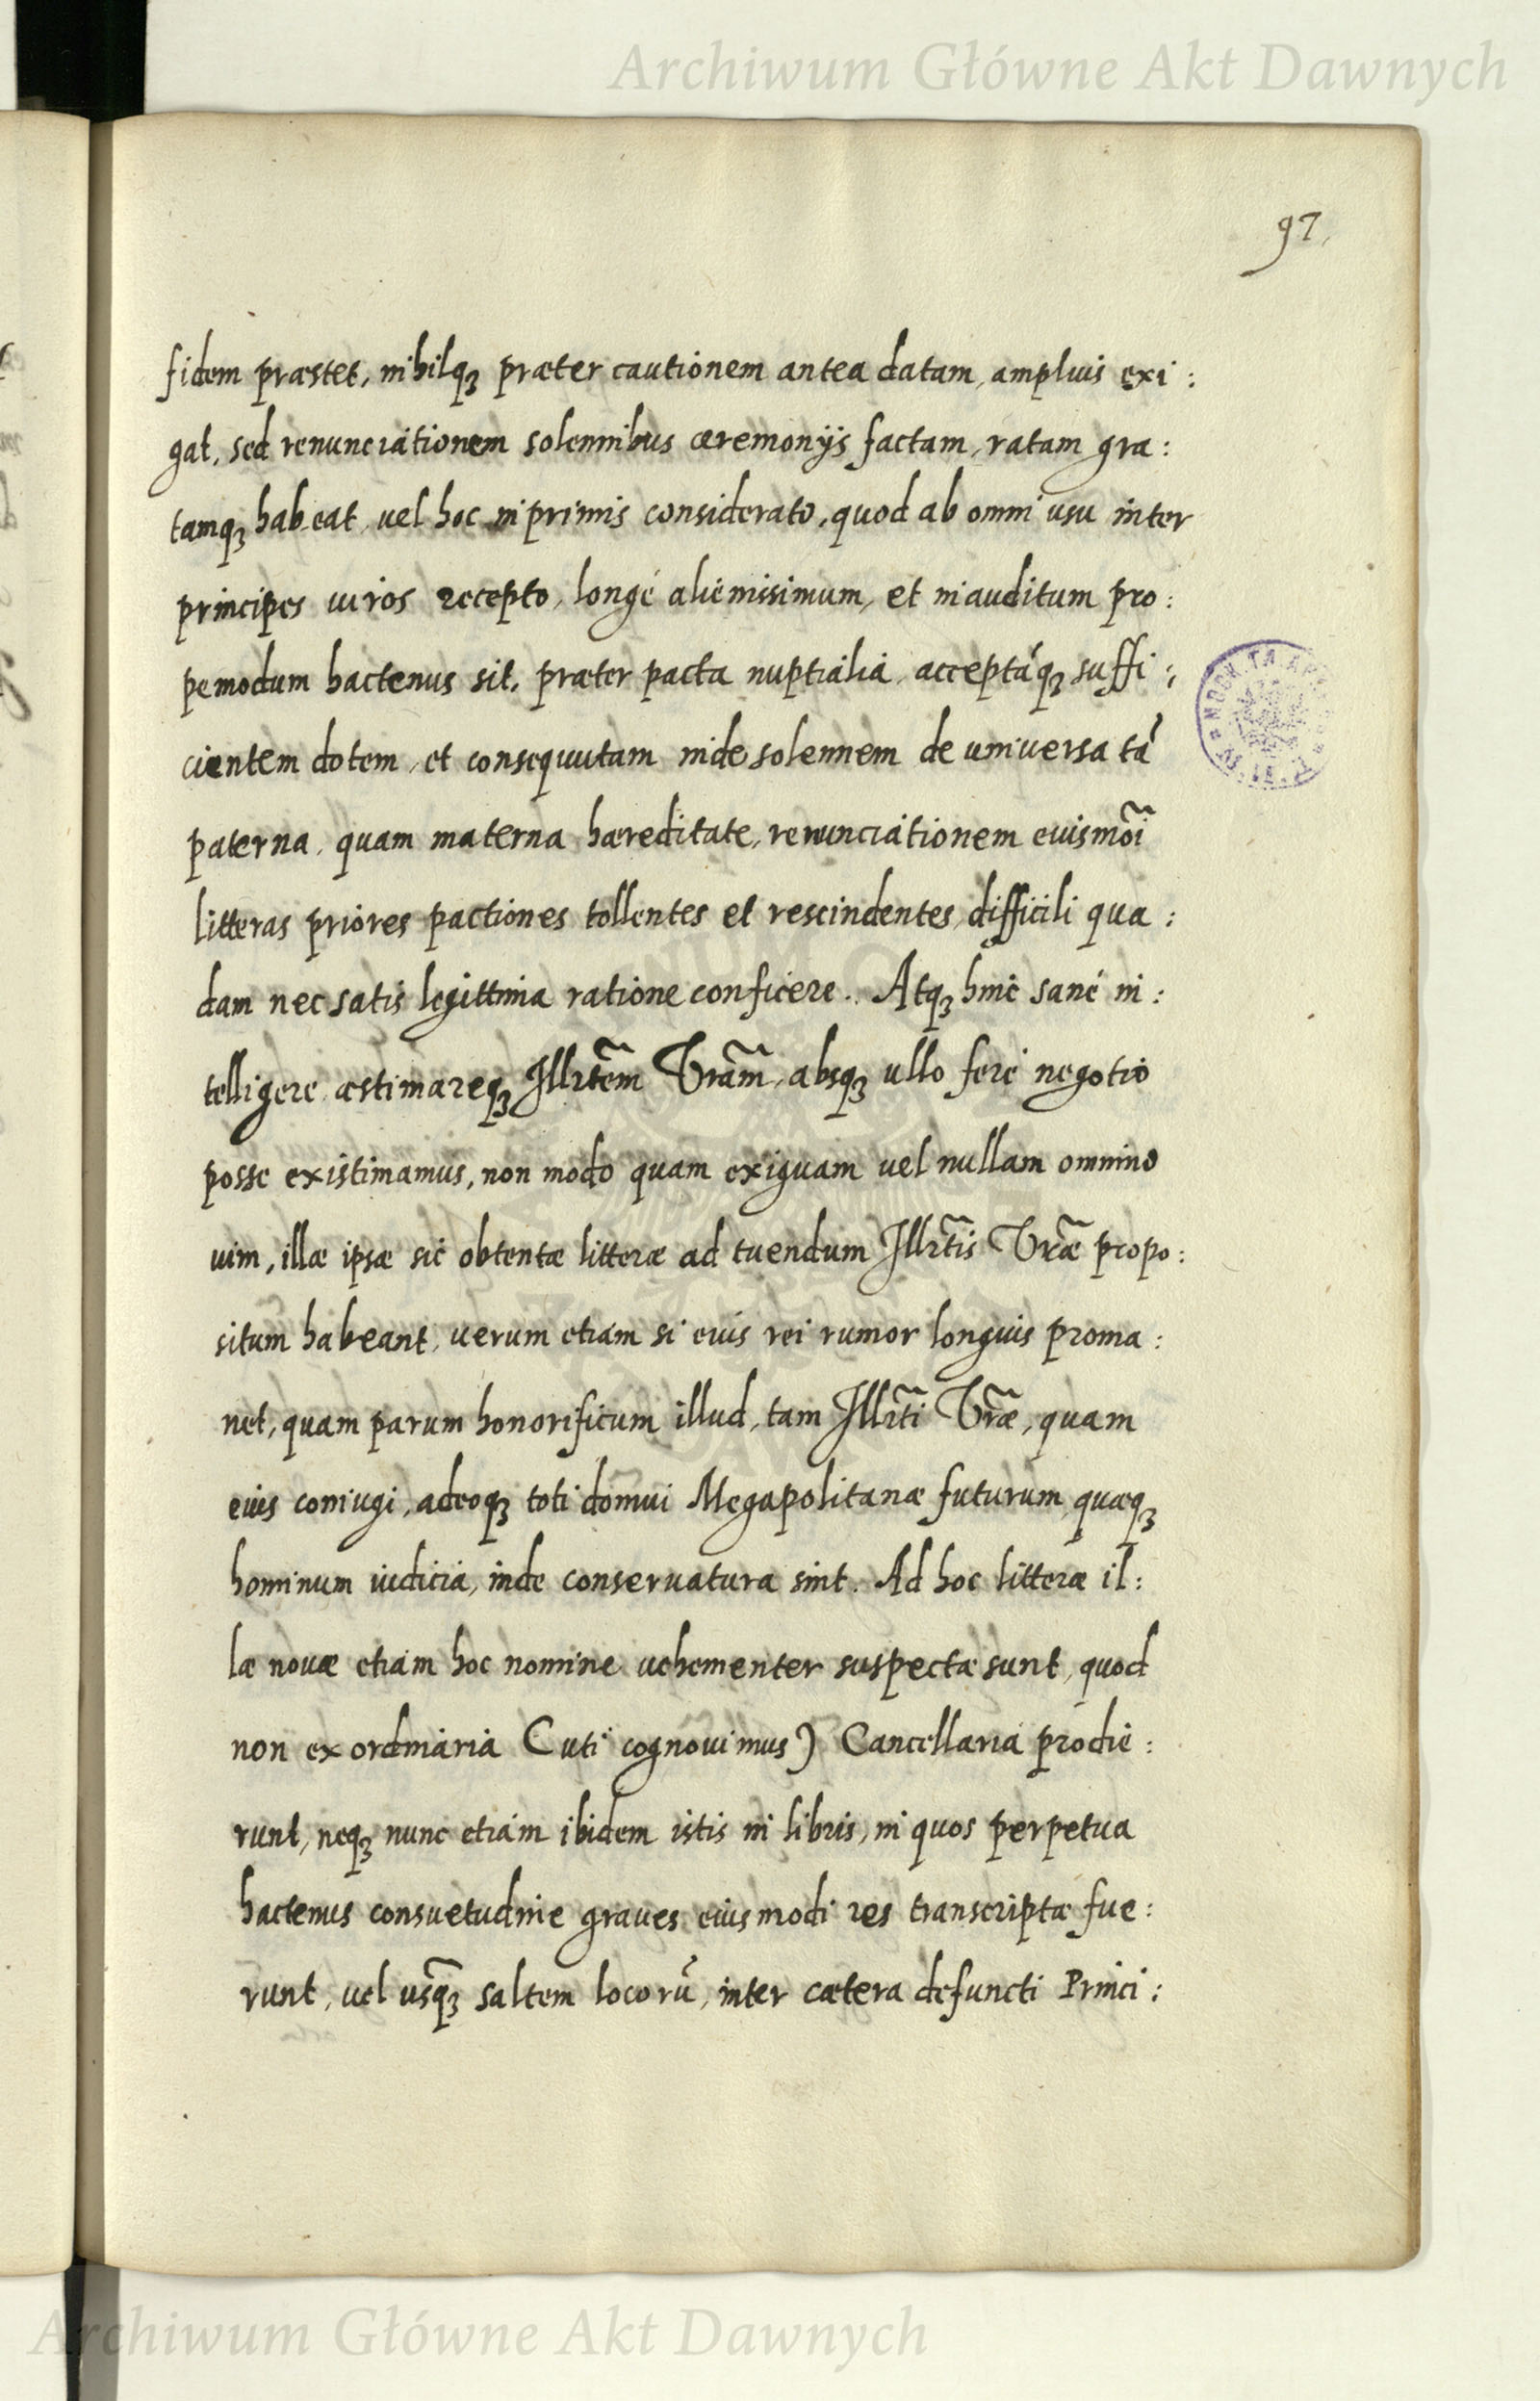 Archiwum Główne Akt Dawnych
97.
fidem præstet, nihilqꝫ præter cautionem antea datam, amplius exi:
gat, sed renunciationem solennibus cæremonijs factam, ratam gra:
tamqꝫ habeat, uel hoc inprimis considerato, quod ab omni usu inter
principes uiros recepto, longé alienissimum, et inauditum pro:
pemodum hactenus sit, præter pacta nuptialia, acceptáqꝫ suffi:
cientem dotem, et consequutam inde solennem de uniuersa tã
paterna, quam materna hæreditate, renunciationem eiusmõi
litteras priores pactiones tollentes et rescindentes, difficili qua:
dam nec satis legittima ratione conficere. Atqꝫ hinc sané in:
telligere æstimareqꝫ Illrtẽm Vrãm, absqꝫ ullo feré negotio
posse existimamus, non modo quam exiguam uel nullam omnino
uim, illæ ipsæ sic obtentæ litteræ ad tuendum Illrt̃is Vrã̃e propo:
situm habeant, uerum etiam si eius rei rumor longius proma:
net, quam parum honorificum illud, tam Illrt̃i Vr̃æ, quam
eius coniugi, adeoqꝫ toti domui Megapolitanæ futurum, quæqꝫ
hominum iudicia, inde conseruatura sint. Ad hoc litteræ il:
læ nouæ etiam hoc nomine uehementer suspectæ sunt, quod
non ex ordinaria (uti cognouimus) Cancellaria prodie:
runt, neqꝫ nunc etiam ibidem istis in libris, in quos perpetua
hactenus consuetudine graues eiusmodi res transcriptæ fue:
runt, uel usq̃ꝫ saltem locorũ, inter cætera defuncti Princi:
Archiwum Główne Akt Dawnych